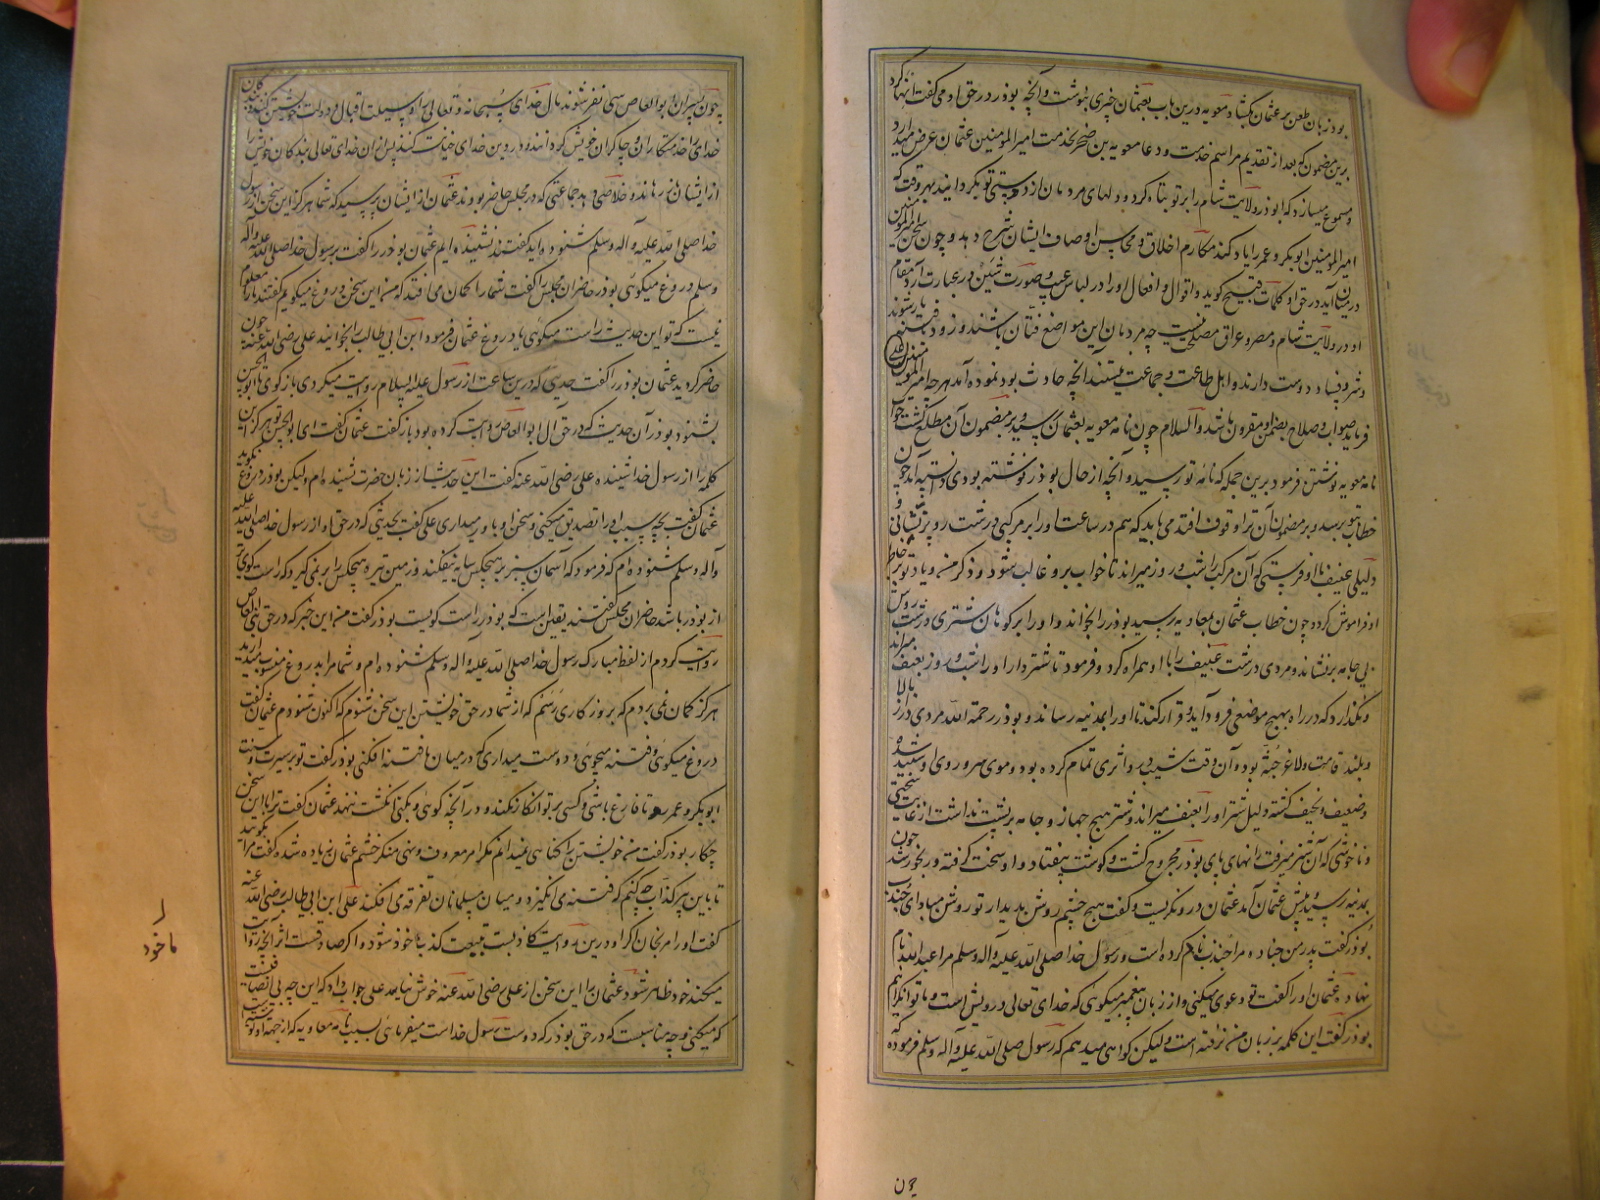 بوذر زبان طعن بر عثمان بگشاد معویه درین باب بعثمان چیزی بنوشت و آنچه بوذر در حق او می گفت انها کرد
برین مضمون که بعد از تقدیم مراسم خدمت و دعا معویه بن صخر بخدمت امیر المومنین عثمان عرض میدارد
و مسموع میسازد که ابوذر ولایت شام را بر تو تباه کرد و دلهای مردمان از دوستی تو بگردانید بهر وقت که
امیر المومنین ابوبکر و عمر را یاد کند مکارم اخلاق و محاسن اوصاف ایشان شرح دهد و چون سخن امیر المومنین
در میان آید در حق او کلمات قبیح گوید و اقوال و افعال او را در لباس عیب و صورت شین در عبارت آرد مقام
او در ولایت شام و مصر و عراق مصلحت نیست چه مردمان این مواضع فتان باشند و زود فتنه یار شوند
و شر و فساد دوست دارند و اهل طاعت و جماعت نیستند آنچه حادث بود نموده آمد هر چه امیر المومنین
فرماید صواب و صلاح بضمن او مقرون باشد والسلام چون نامه معویه بعثمان رسید و بر مضمون آن مطلع گشت جواب
نامه معویه نوشتن فرمود برین جمله که نامه تو رسید و آنچه از حال بوذر نوشته بودی دانسته آمد چون
خطاب بتو برسد و بر مضمون آن ترا وقوف افتد می باید که هم در ساعت او را بر مرکبی درشت رو بنشانی و
دلیلی عنیف با او فرستی که آن مرکب را شب و روز میراند تا خواب برو غالب شود و ذکر من و یاد تو بر خاطر
او فراموش گردد چون خطاب عثمان بمعاویه رسید بوذر را بخواند و او را بر کوهان شتری درشت روش
بی جامه برنشاند و مردی درشت عنیف را با او همراه کرد و فرمود تا شتر دار او را شب و روز بعنف میراند
و نگذارد که در راه بهیچ موضعی فرود آید و قرار کند تا او را بمدینه رساند و بوذر رحمه الله مردی دراز بالا
و بلند قامت و لاغر جثه بود و آن وقت شیب در و اثری تمام کرده بود و موی سر و روی او سپید شده
و ضعیف و نحیف گشته دلیل شتر او را بعنف میراند و شتر هیچ جهاز و جامه بر پشت نداشت از غایت سختی
و ناخوشی که آن شتر میرفت رانهای پای بوذر مجروح گشت و گوشت بیفتاد و او سخت کوفته و رنجور شد چون
بمدینه رسید پیش عثمان آمد عثمان در و نگریست و گفت هیچ چشم روش بدیدار تو روشن مباد ای جندب
بوذر گفت پدر من جناده مرا جندب نام کرده است و رسول خدا صلی الله علیه و آله وسلم مرا عبدالله نام
نهاد عثمان او را گفت تو دعوی میکنی و از زبان پیغمبر میگوئی که خدای تعالی درویش است و ما توانگرانیم
بوذر گفت این کلمه بر زبان من نرفته است ولیکن گواهی میدهم که رسول صلی الله علیه و آله وسلم فرموده که
چون
چون پسران ابوالعاص سی نفر شوند مال خدای سبحانه و تعالی را وسیلت اقبال و دولت خویشتن کنند و بندگان
خدای را خدمتکاران و چاکران خویش گردانند و در دین خدای خیانت کنند پس از آن خدای تعالی بندگان خویش را
از ایشان برهاند و خلاصی دهد جماعتی که در مجلس حاضر بودند عثمان از ایشان پرسید که شما هرگز این سخن از رسول
خدا صلی الله علیه و آله وسلم شنوده اید گفتند نشنیده ایم عثمان بوذر را گفت بر رسول خدا صلی الله علیه و آله
وسلم دروغ میگوئی بوذر حاضران مجلس را گفت شما را گمان می افتد که من این سخن دروغ میگویم گفتند ما را معلوم
نیست که تو این حدیث راست میگوئی یا دروغ عثمان فرمود ابن ابی طالب را بخوانید علی رضی الله عنه چون
حاضر گردید عثمان بوذر را گفت حدیثی که درین ساعت از رسول علیه السلام روایت میکردی بازگوی تا ابوالحسن
بشنود بوذر آن حدیث که در حق آل ابوالعاص روایت کرده بود بازگفت عثمان گفت ای ابوالحسن تو هرگز این
کلمه را از رسول خدا شنیده علی رضی الله عنه گفت این حدیث از زبان حضرت نشنیده ام ولیکن بوذر دروغ نگوید
عثمان گفت بچه سبب او را تصدیق میکنی و سخن او باور میداری علی گفت بحدیثی که در حق او از رسول خدا صلی الله علیه
و آله وسلم شنوده ام که فرمود که آسمان سبز بر هیچکس سایه نیفکند و زمین تیره هیچکس را برنمی گیرد که راست گوی تر
از بوذر باشد حاضران مجلس گفتند یقین است که بوذر راست گویست بوذر گفت من این خبر که در حق بنی العاص
روایت کردم از لفظ مبارک رسول خدا صلی الله علیه و آله وسلم شنوده ام و شما مرا بدروغ منسوب میدارید
هرگز گمان نمی بردم که بروزگاری رسم که از شما در حق خویشتن این سخن شنوم که اکنون شنودم عثمان گفت
دروغ میگوئی و فتنه میجوئی و دوست میداری که در میان ما فتنه افکنی بوذر گفت تو بر سیرت و سنت
ابوبکر و عمر رو تا فارغ باشی و کسی بر تو انکار نکند و در آنچه گوئی و بکنی انگشت ننهد عثمان گفت ترا با این سخن
چکار بوذر گفت من خویشتن را گناهی نمیدانم مگر امر معروف و نهی منکر خشم عثمان زیاده شد و گفت مرا بگویید
تا با این پیر کذاب چه کنم که فتنه می انگیزد و میان مسلمانان تفرقه می افکند علی ابن ابی طالب رضی الله عنه
گفت او را مرنجان اگر او درین روایت کاذبست تبعیت کذب ماخوذ شود و اگر صادقست اثر آنچه روایت
میکند خود ظاهر شود عثمان را این سخن از علی رضی الله عنه خوش نیامد علی جواب داد که این چه بی انصافیست
که میکنی و چه مناسبست که در حق بوذر که دوست رسول خداست میفرمائی بسبب نامه معاویه که از جهت او رسید
ماخود